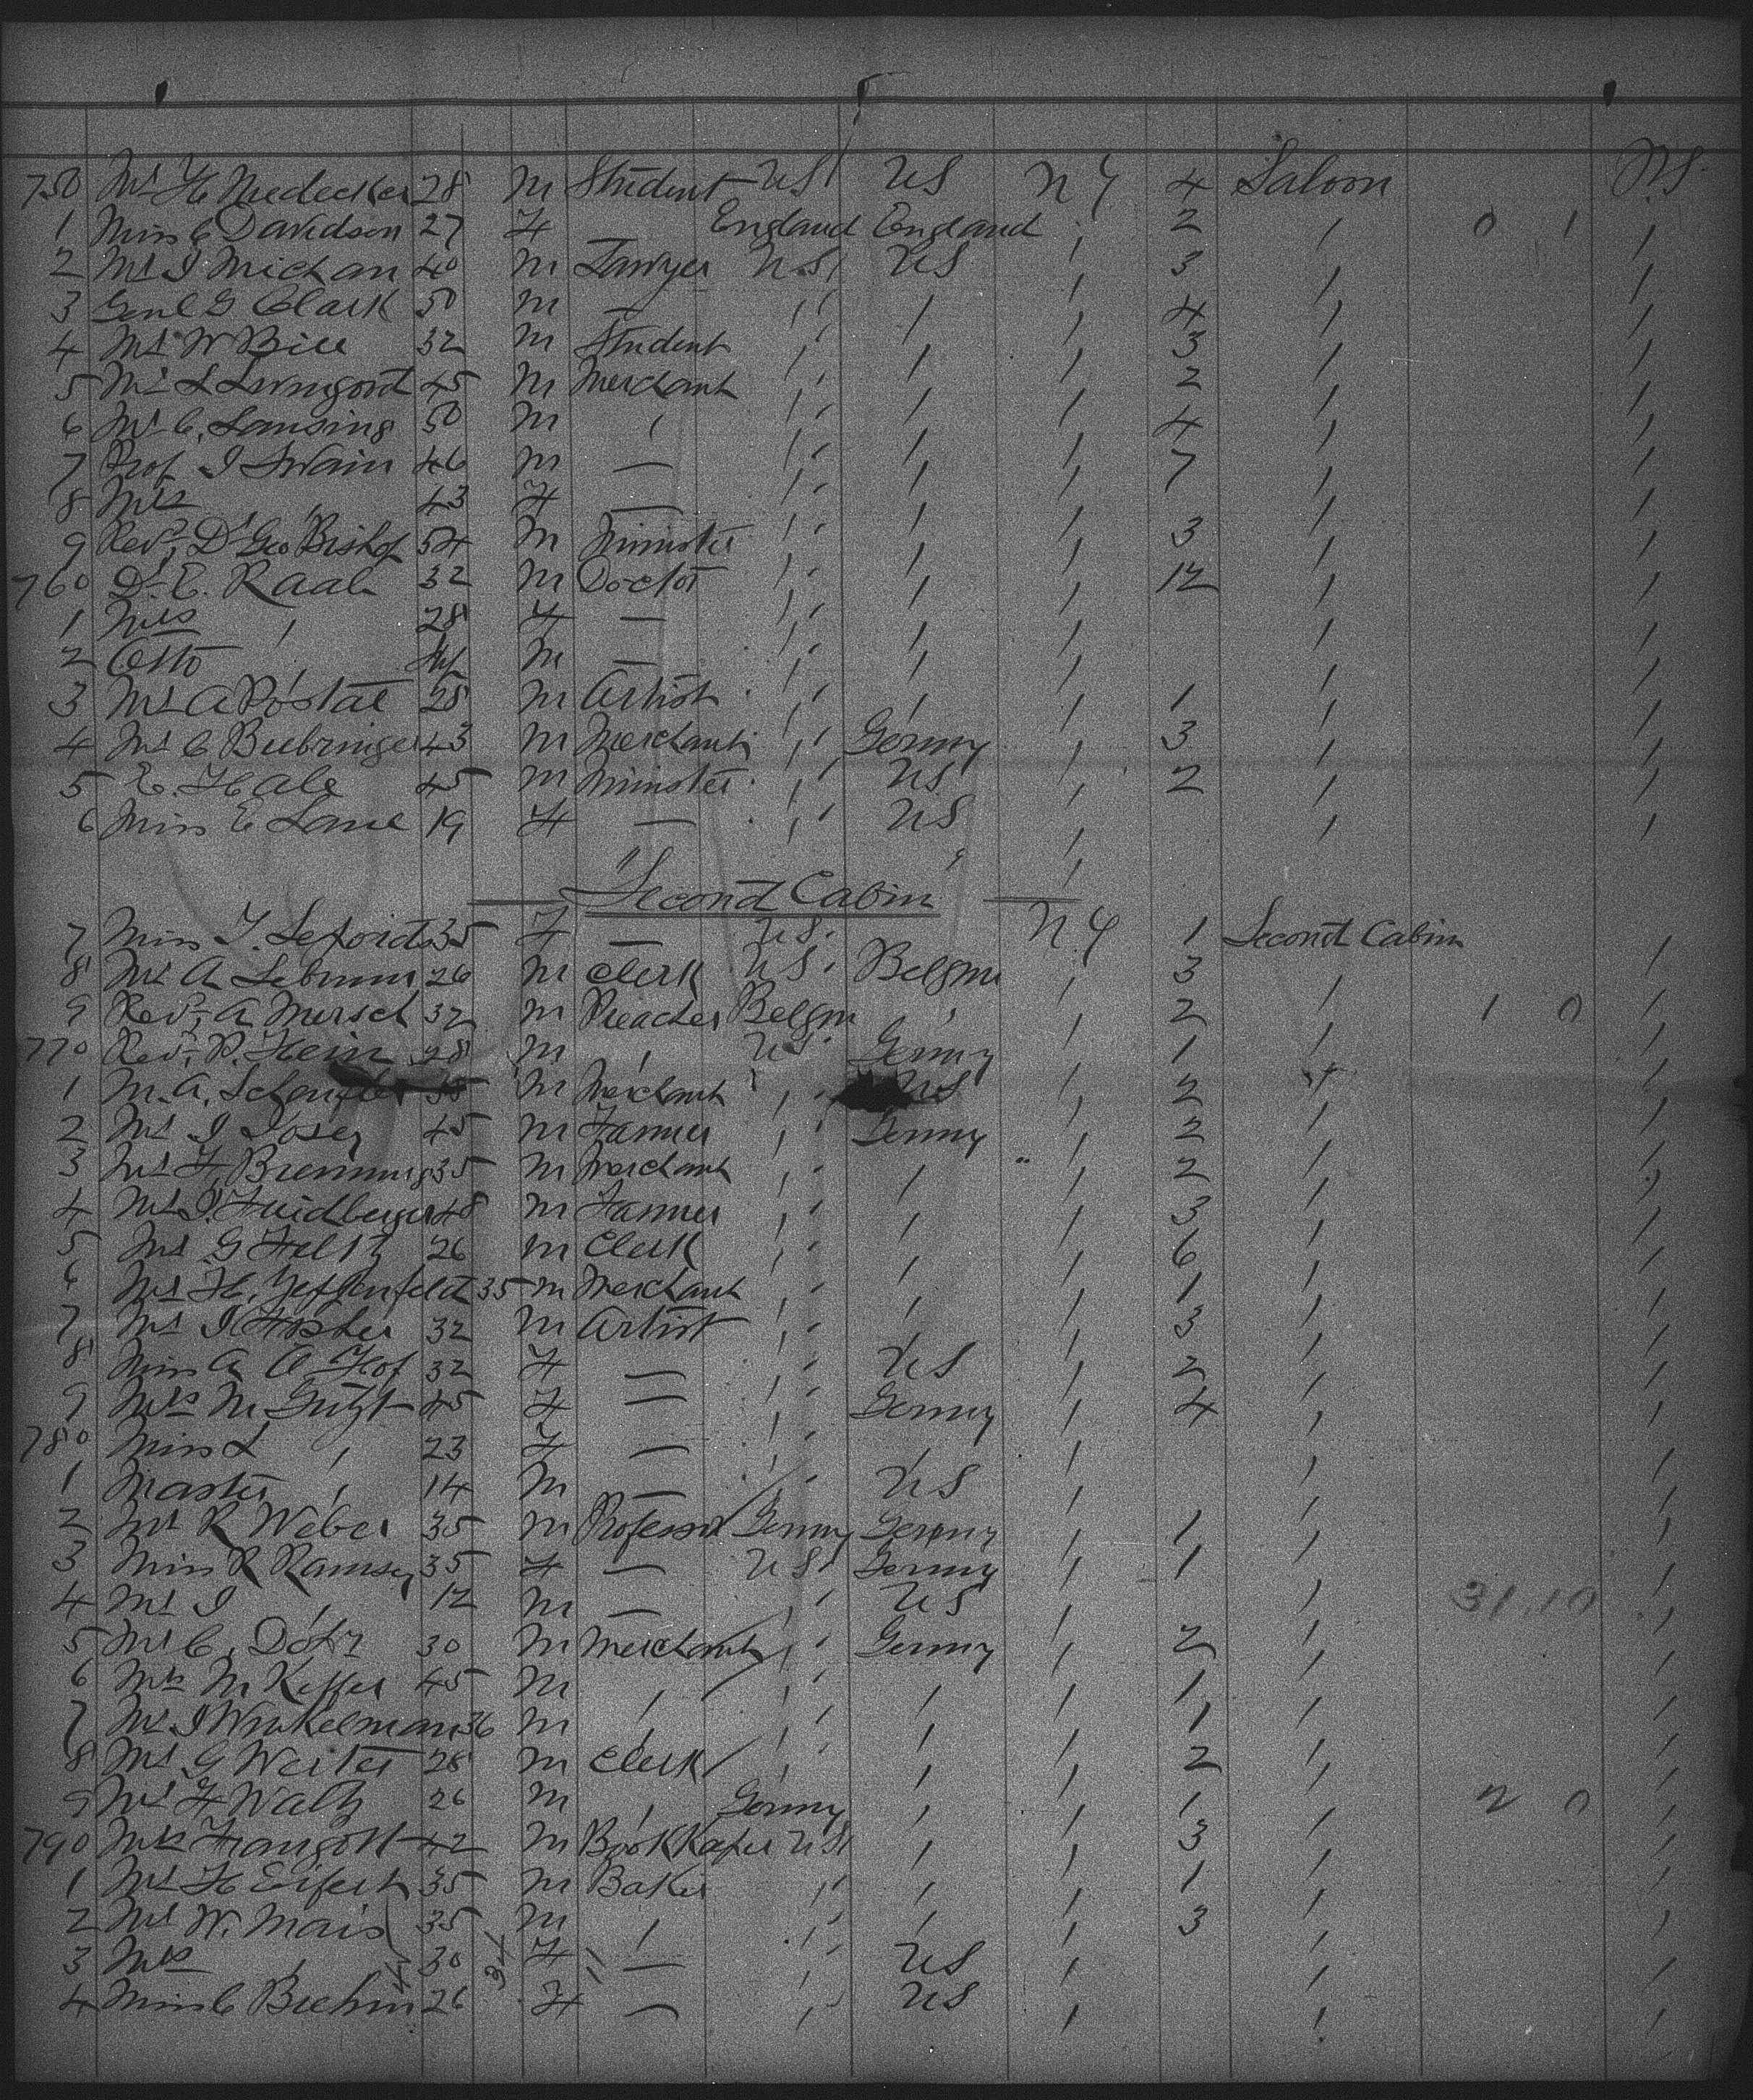 750 Mr H Niedecker 28 M Student US US NY 4 Saloon NS.
1 Miss C Davidson 27 F — England England , 2 , 0 1 ,
2 Mr I Michan 40 M Lawyer US US , 3 , ,
3 Genl G Clark 50 M — , , , 4 , ,
4 Mr W Bill 32 M Student , , , 3 , ,
5 Mr L 45 M Merchant , , , 2 , ,
6 Mr C. Lansing 50 M , , , , 4 , ,
7 Prof I Swain 46 M — , , , 7 , ,
8 Mrs , 43 F — , , , , ,
9 Revd Dr Geo Bishop 54 M Minister , , , 3 , ,
760 Dr E. Raab 32 M Doctor , , , 12 , ,
1 Mrs , 28 F — , , , , ,
2 Otto , M — , , , , ,
3 Mr A Postal 28 M Artist , , , 1 , ,
4 Mr C Buebringer 43 M Merchant , Germy , 3 , ,
5 E. Hale 45 M Minister , US , 2 , ,
6 Miss E Lane 19 F — , US , , ,
"Second Cabin"
7 Miss J. 35 F — US. NY 1 Second Cabin ,
8 Mr A Lebrun 26 M Clerk US. Belgm , 3 , ,
9 Revd A Mersch 32 M Preacher Belgm , , 2 , 1 0 ,
770 Revd P. Hein 28 M , US Germy , 1 , ,
1 M. A. 35 M Merchant , US , 2 , ,
2 Mr I Joser 45 M Farmer , Germy , 2 , ,
3 Mr F. Bremming 35 M Merchant , , , 2 , ,
4 Mr I. Friedberger 48 M Farmer , , , 3 , ,
5 Mr G Feltz 26 M Clerk , , , 6 , ,
6 Mr H. Zeffenfeldt 35 M Merchant , , , 1 , ,
7 Mr I 32 M Artist , , , 3 , ,
8 Miss A A Hof 32 F — , US , 2 , ,
9 Mrs M Gutzt 45 F — , Germy , 4 , ,
780 Miss L , 23 F — , , , , ,
1 Master , 14 M — , US , , ,
2 Mr R Weber 35 M Professor Germy Germy , 1 , ,
3 Miss R Ramsey 35 F — US Germy , 1 , ,
4 Mr I , 12 M — , US , , 31.10 ,
5 Mr C. Dotz 30 M Merchant , Germy , 2 , ,
6 Mrs M Keller 45 M , , , , 1 , ,
7 Mr I Winkelman 36 M , , , , 1 , ,
8 Mr G Weiter 28 M Clerk , , , 2 , ,
9 Mr F Waltz 26 M , Germy , , 1 , 2 0 ,
790 Mrs Frangott 42 M BookKeeper US , , 3 , ,
1 Mr H Eifert 35 M Baker , , , 1 , ,
2 Mr W. Mais 35 M , , , , 3 , ,
3 Mrs , 30 F — , US , , ,
4 Miss C Brehm 26 F — , US , , ,